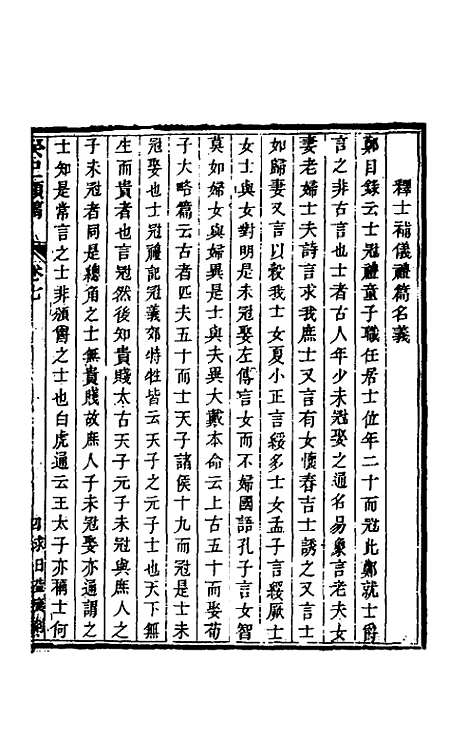 釋士補儀禮篇名義
鄭目録云士冠禮童子職任居士位年二十而冠此鄭就士爵
言之非古言也士者古人年少未冠娶之通名易象言老夫女
妻老婦士夫詩言求我庶士又言有女懷春吉士誘之又言士
如歸妻又言以穀我士女夏小正言綏多士女孟子言綏厥士
女士與女對明是未冠娶左傳言女而不婦國語孔子言女智
莫如婦女與婦異是士與夫異大戴本命云上古五十而娶荀
子大略篇云古者匹夫五十而士天子諸侯十九而冠是士未
冠娶也士冠禮記冠義郊特牲皆云天子之元子士也天下無
生而貴者也言冠然後知貴賤太古天子元子未冠與庶人之
子未冠者同是緫角之士無貴賤故庶人子未冠娶亦通謂之
士知是常言之士非頒爵之士也白虎通云王太子亦稱士何
類稿 卷七
求日益齋